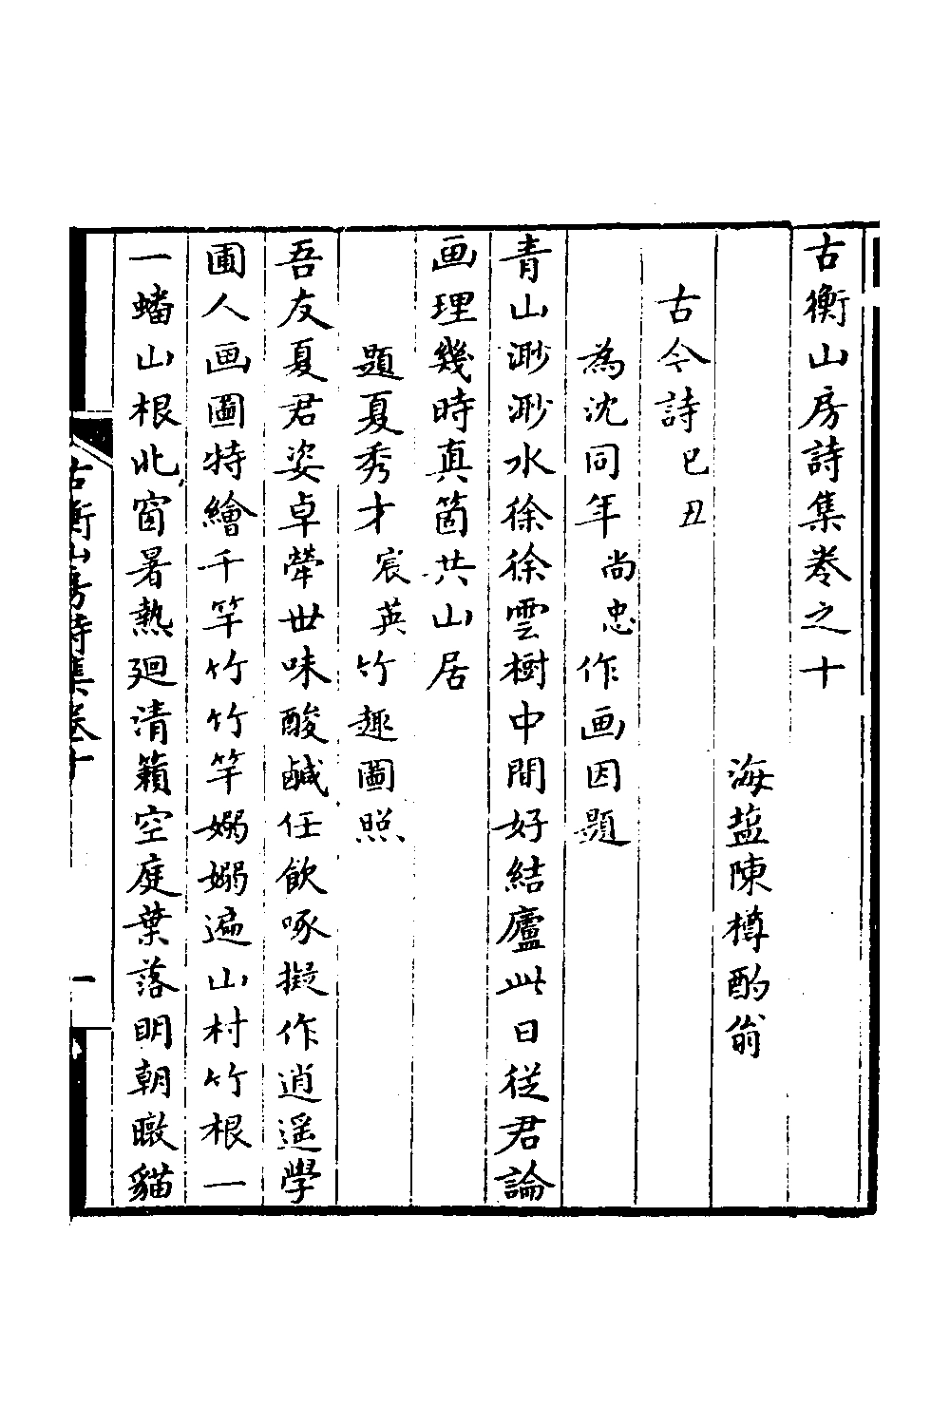 古衡山房詩集卷之十
海鹽陳樽酌翁
古今詩己丑
為沈同年尚忠作画因題
青山渺渺水徐徐雲樹中間好結廬此日從君論
画理幾時真箇共山居
題夏秀才宸英竹趣圖照
吾友夏君姿卓犖世味酸鹹任飲啄擬作逍遥學
圃人画圖特繪千竿竹竹竿嫋嫋遍山村竹根一
一蟠山根北窗暑熱迴清籟空庭葉落明朝暾貓
古衡山房詩集卷十
一